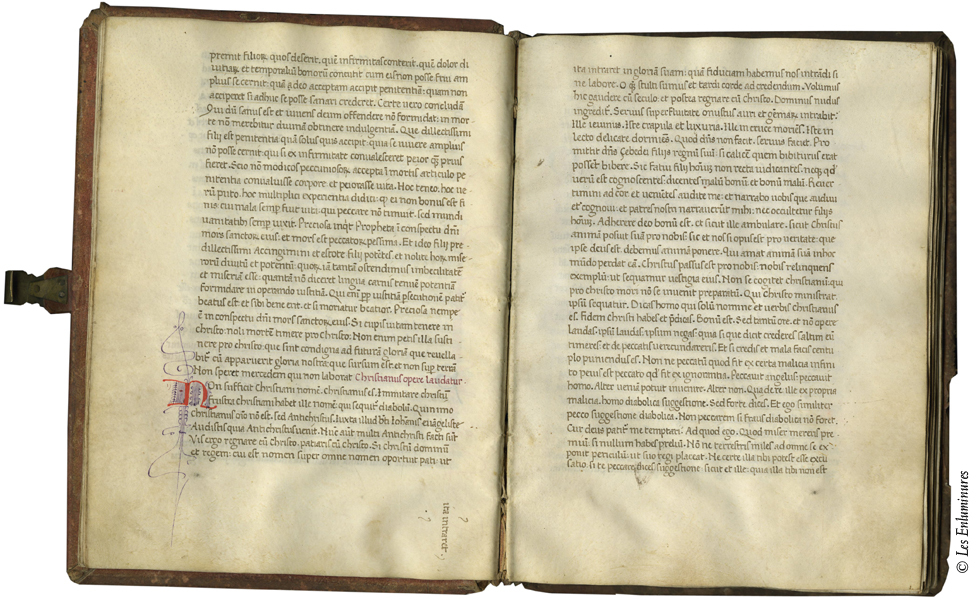 premit filios quos deserit. quē infirmitas conterit. quē dolor di
uitiarū et temporaliū bonorū concutit cum eis non posse frui am
plius se cernit: quā a deo acceptam accipit penitentiā: quam non
acciperet si adhuc se posse sanari crederet. Certe uero concludam
Qui dū sanus est et iuuenis deum offendere nō formidat: in mor
te nō merebitur diuinā obtinere indulgentiā. Que dilectissimi
filij est penitentia quā solus quis accipit. quia se uiuere amplius
nō posse cernit: qui si ex infirmitate conualesceret peior q̄ prius
fieret. Scio nō modicos pecuniosos. accepta ī mortis articulo pe
nitentia conualuisse corpore et peiorasse uita. Hoc teneo. hoc ue
rū puto. hoc multiplici experientia didici: q̄ ei non bonus est fi
nis. cui mala semp̄ fuit uita: qui peccare nō timuit. sed mundi
uanitatibus semp̄ uixit. Preciosa inqt Propheta ī conspectu dn̄i
mors sanctorū eius. et mors est peccatorū pessima. Et ideo filij pre
dillectissimi Accingimini et estote filij potētes. et nolite horū mise
rorū diuitū et potentū: quorū iā tantā ostendimus imbecilitatē
et miseriā esse: quantā nō diceret lingua carnis tenui potentiam
formidare in operando iusticiā. Qui enī pp̄ iustitiā psecutionem patit̄
beatus est et sibi bene erit. et si moriatur beatior. Preciosa nempe
ē in conspectu dn̄i mors sanctorū eius. Si cupis uitam tenere in
christo: noli mortē timere pro christo: Non enim penis illa susti
nere pro christo. que sint condigna ad futurā gloriā que reuella
bit̄ cū apparuerit gloria nostra: que sursum est: et non sup̄ terrā
Non speret mercedem qui non laborat Christianus opere laudatur
NOn sufficit Christiani nomē. christianus es. immitare christū
Frustra christiani habet ille nomē: qui sequit̄ diabolū. Quin imo
christianus oīo nō est. sed Antichristus. Iuxta illud bti Iohānis euāgeliste
Audistis quia Antichristus uenit. Nūc aūt multi Antichristi facti sunt
Vis ergo regnare cū christo. patiaris cū christo. Si christū dominū
et regem: cui est nomen super omne nomen oportuit pati. ut
ita intraret
ita intraret in gloriā suam: quā fiduciam habemus nos intrādi si
ne labore. O q̄ stulti sumus et tardi corde ad credendum. Volumus
hic gaudere cū seculo et postea regnare cū christo. Dominus nudus
ingredit̄. Seruus superfluitate onustus auri et gēmarū intrabit.
Ille ieiunus. Iste crapula et luxuria. Ille in cruce moriēs. Iste in
lecto delicate dormiēs. Quod dn̄s non facit. seruus faciet. Pro
mittit dn̄s Çebedei filijs regnū suū: si calicē quem bibiturus erat
possēt bibere. Sic fatui filij hoīuȝ non recta iudicantes. neqȝ qd̄
uerū est cognoscentes: dicentes malū bonū: et bonū malū. Reuer
timini ad cor et uenites audite me: et narrabo uobis que audiui
et cognoui: et patres nostri narrauerūt mihi: nec occultetur filijs
hoīuȝ. Adherere deo bonū est. et sicut ille ambulare. sicut Christus
animā posuit suā pro nobis sic et nos si opus est pro ueritate: que
ipse deus est. debemus animā ponere. Qui amat animā suā in hoc
mūdo perdat eā. Christus passus est pro nobis: nobis relinquens
exemplū: ut sequamur uestigia eius. Non se cogitet christianū: qui
pro christo mori nō se inuenit preparatū. Qui christo ministrat.
ipsū sequatur. Dicas homo qui solū nomine et uerbis christianus
es. fidem christi habes et p̄dicas. Bonū est. Sed tantū ore. et nō opere
laudas. ipsū laudas. ipsum negas: quia si que dicit crederes saltim eū
timeres et de peccatis uerecundareris. Et si credis et mala facis centu
plo puniendus es. Nam et peccatū quod fit ex certa malitia infini
to peius est peccato qd̄ fit ex ignorantia. Peccauit angelus: peccauit
homo. Alter ueniā potuit inuenire. Alter non. Qua de re ille ex propria
malicia. homo diabolica suggestione. Sed forte dices. Et ego similiter
pecco suggestione diabolica. Non peccarem si fraus diaboli nō foret.
Cur deus patit̄ me temptari. Ad quod ego. Quod miser mereris pre
miū: si nullum habes preliū. Nō ne terrestris miles ad omne se ex
ponit periculū: ut suo regi placeat. Ne certe illa tibi potest esse excu
satio. si te peccare dices suggestione. sicut et ille: quia illa tibi non est
© Les Enluminures